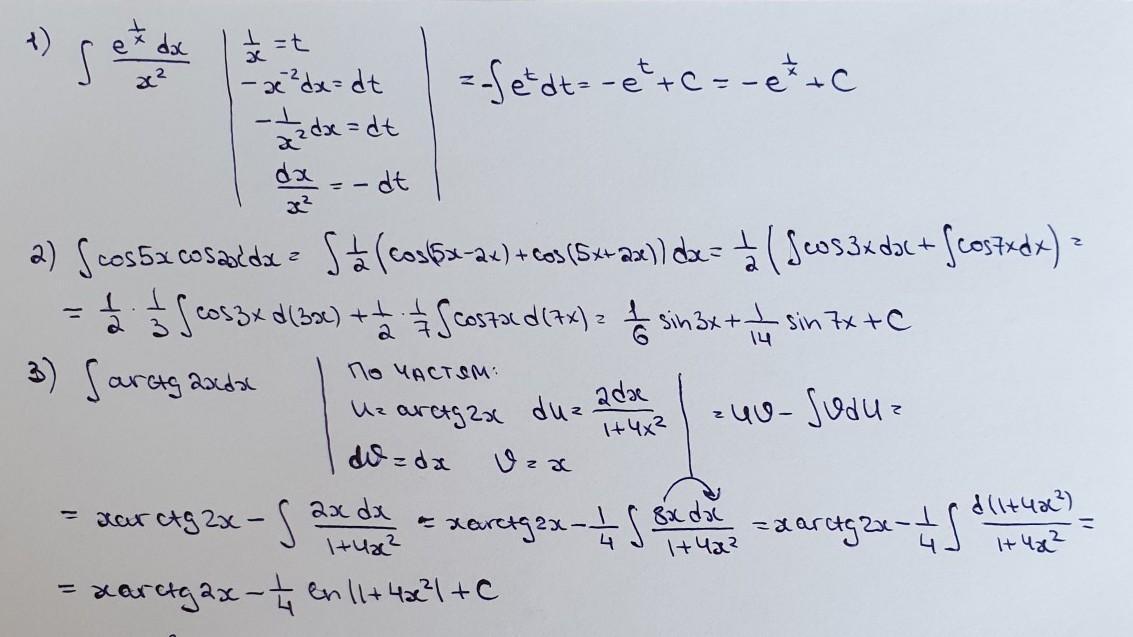 1) ∫ e^(1/x) dx / x² | 1/x = t | = -∫ e^t dt = -e^t + C = -e^(1/x) + C
-x⁻² dx = dt
-1/x² dx = dt
dx/x² = - dt
2) ∫ cos5x cos2x dx = ∫ 1/2 (cos(5x-2x) + cos(5x+2x)) dx = 1/2 (∫ cos3x dx + ∫ cos7x dx) =
= 1/2 · 1/3 ∫ cos3x d(3x) + 1/2 · 1/7 ∫ cos7x d(7x) = 1/6 sin3x + 1/14 sin7x + C
3) ∫ arctg 2x dx | по частям:
u = arctg2x du = 2dx / (1+4x²) | = uv - ∫ v du =
dv = dx v = x
= x arctg2x - ∫ 2x dx / (1+4x²) = x arctg2x - 1/4 ∫ 8x dx / (1+4x²) = x arctg2x - 1/4 ∫ d(1+4x²) / (1+4x²) =
= x arctg2x - 1/4 ln|1+4x²| + C